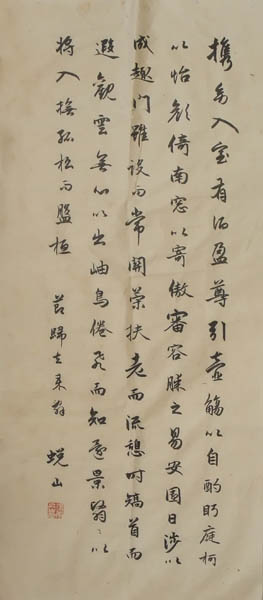 攜幼入室有酒盈尊引壺觴以自酌眄庭柯
以怡顏倚南窓以寄傲審容膝之易安園日涉以
成趣門雖設而常關策扶老而流憩時矯首而
遐觀雲無心以出岫鳥倦飛而知還景翳〻以
將入撫孤松而盤桓 節歸去來辭 蛻山